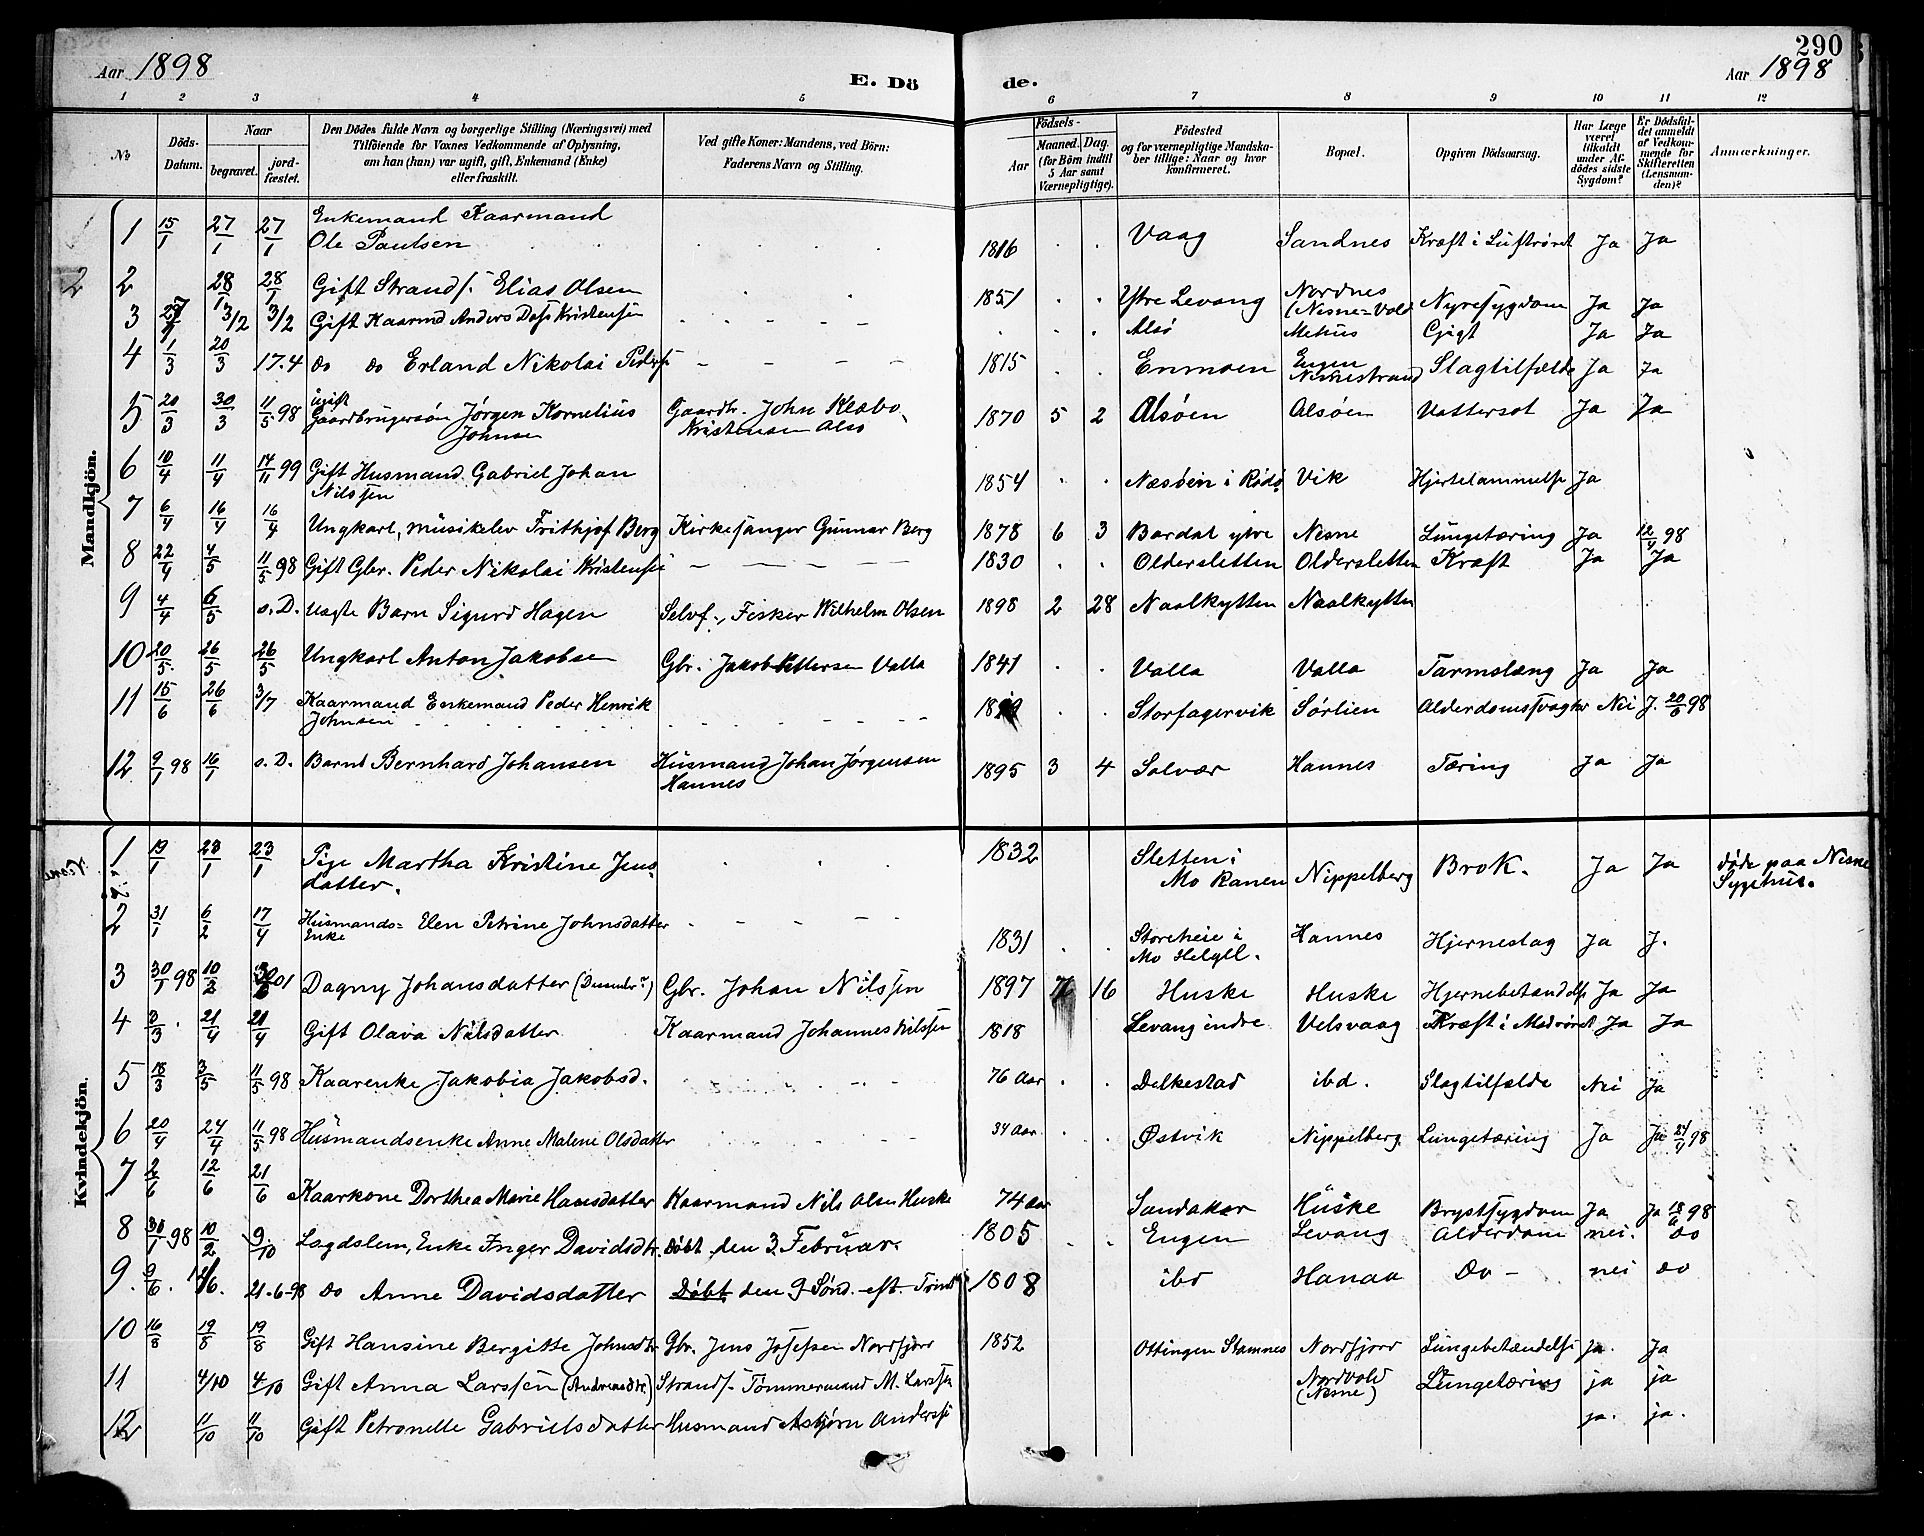 290
Aar 1898
E. Dö
de.
Aar 1898
1 2 3 4 5 6 7 8 9 10 11 12
No
Döds-Datum.
Naar
begravet.
jord-fæstet.
Den Dödes fulde Navn og borgerlige Stilling (Næringsvei) med
Tilföiende for Voxnes Vedkommende af Oplysning,
om han (han) var ugift, gift, Enkemand (Enke)
eller fraskilt.
Ved gifte Koner: Mandens, ved Börn:
Faderens Navn og Stilling.
Födsels-
Aar
Maaned. Dag.
(for Börn indtil
5 Aar samt
Værnepligtige).
Födested
og for værnepligtige Mandska-
ber tillige: Naar og hvor
konfirmeret.
Bopæl.
Opgiven Dödsaarsag.
Har Læge
været
tilkaldt
under Af-
dödes sidste
Sygdom?
Er Dödsfal-
det anmeldt
af Vedkom-
mende for
Skifteretten
(Lensman-
den)?
Anmærkninger.
Mandkjön.
1 15/1 27/1 27/1 Enkemand Kaarmand
Ole Paulsen 1816 Vaag Sandnes Kræft i Luftrøret Ja Ja
2 2 28/1 28/1 Gift Strands. Elias Olsen 1851 Ytre Levang Nordnes
(Nesne-Vold Nyresygdom Ja Ja
3 3/2 3/2 Gift Kaarmd Anders Dass Kristensen Alsö Mehus Gigt Ja Ja
4 1/3 20/3 17.4 do do Erland Nikolai Peders 1815 Enmoen Engen
Nesnestrand Slagtilfælde Ja Ja
5 20/3 30/3 11/5 98 ugift
Gaardbrugersøn Jørgen Kornelius
Johnsen Gaardbr. John Klæbo
Kristensen Alsö 1870 5 2 Alsöen Alsöen Vattersot Ja Ja
6 10/4 11/4 14/11 99 Gift Husmand Gabriel Johan
Nilssen 1854 Næsöen i Rödö Vik Hjertelammelse Ja
7 6/4 16/4 16/4 Ungkarl, musikelev Frithjof Berg Kirkesanger Gunnar Berg 1878 6 3 Bardal ytre Nesne Lungetæring Ja 12/4 98
8 22/4 4/5 11/5 98 Gift Gbr. Peder Nikolai Kristensen 1830 Oldersletten Oldersletten Kræft Ja Ja
9 4/4 6/5 s.D. uægte Barn Sigurd Hagen Selvf., Fisker Wilhelm Olsen 1898 2 28 Naalkytten Naalkytten
10 20/5 26/5 26/5 Ungkarl Anton Jakobsen Gbr. Jakob Pettersen Valla 1841 Valla Valla Tarmslæng Ja Ja
11 15/6 26/6 3/7 Kaarmand Enkemand Peder Henrik
Johnsen Storfagervik Sörlien Alderdomssvaghed Nei J. 20/6 98
12 9/1 98 16/1 s.D. Barnet Bernhard Johansen Husmand Johan Jørgensen
Hannes 1895 3 4 Solvær Hannes Tæring Ja Ja
Kvindekjön.
1 19/1 23/1 23/1 Pige Martha Kristine Jens
datter. 1832 Sletten i
Mo Ranen Nippelberg Brok. Ja Ja döde paa Nesne
Sygehus.
2 31/1 6/2 17/4 Husmands-
Enke Elen Petrine Johnsdatter 1831 Storeheie i
Mo Helgll. Hannes Hjerneslag Ja J.
3 30/1 98 10/2 01 Dagny Johansdatter Gbr. Johan Nilssen 1897 16 Huske Huske Hjernebetændelse Ja Ja
4 8/3 21/4 21/4 Gift Olava Nilsdatter Kaarmand Johannes Nilssen 1818 Levang indre Velsvaag Kræft i Madröret Ja Ja
5 18/3 3/5 11/5 98 Kaarenke Jakobia Jakobsd. 76 Aar Delkestad ibd. Slagtilfælde Nei Ja
6 20/4 24/4 11/5 98 Husmandsenke Anne Malene Olsdatter 34 Aar Østvik Nippelberg Lungetæring Ja Ja 24/4 98
7 2/6 12/6 21/6 Kaarkone Dorthea Marie Hansdatter Kaarmand Nils Olsen Huske 74 Aar Sandaker Huske Brystsygdom Ja Ja 18/6 98
8 30/1 98 10/2 9/10 Lægdslem, Enke Inger Davidsdtr. Döbt den 3 Februar. 1805 Engen Levang Alderdom nei. do
9. 9/6. 21-6-98 do Anne Davidsdatter Döbt den 9 Sönd. eft. Trinit 1808 ibd Hanaa Do - nei do
10 16/8 19/8 19/8 Gift Hansine Bergitte Johnsdtr Gbr. Jens Josefsen Nordfjord 1852 Ottingen Stamnes Nordfjord Lungebetændelse ja. Ja
11 4/10 4/10 Gift Anna Larssen (Andreasdtr) Strands. Tömmermand M. Larssen Nordvold
(Nesne) Lungetæring ja ja
12 11/10 11/10 Gift Petronelle Gabrielsdatter Husmand Asbjörn Anderss ja. ja.